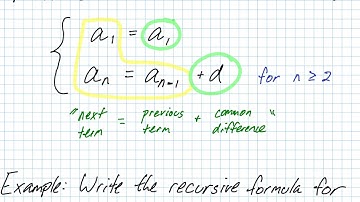 a₁ = a₁
aₙ = aₙ₋₁ + d for n ≥ 2
"next term = previous term + common difference"
Example: Write the recursive formula for